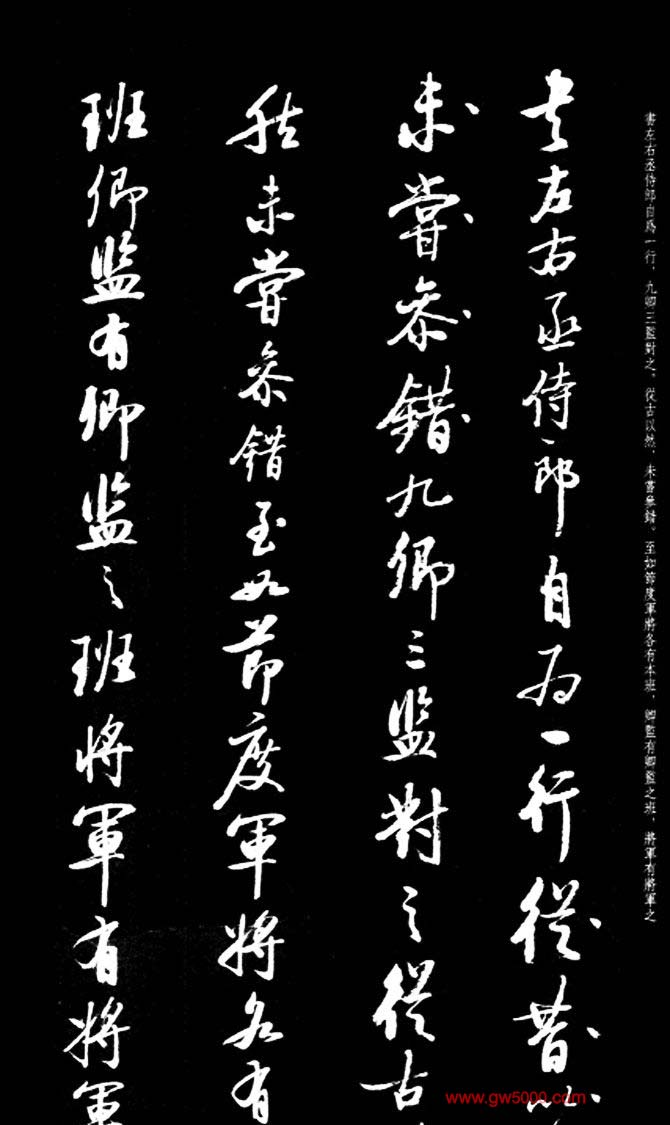 書左右丞侍郎自爲一行、九卿三監對之。從古以然、未嘗參錯。至如節度軍將各有本班、卿監有卿監之班、將軍有將軍之
书左右丞侍郎自为一行從昔以
未嘗参錯九卿三监對之從古
然未嘗参错至如节度軍將各有
班卿监有卿监之班将軍有将軍
www.gw5000.com